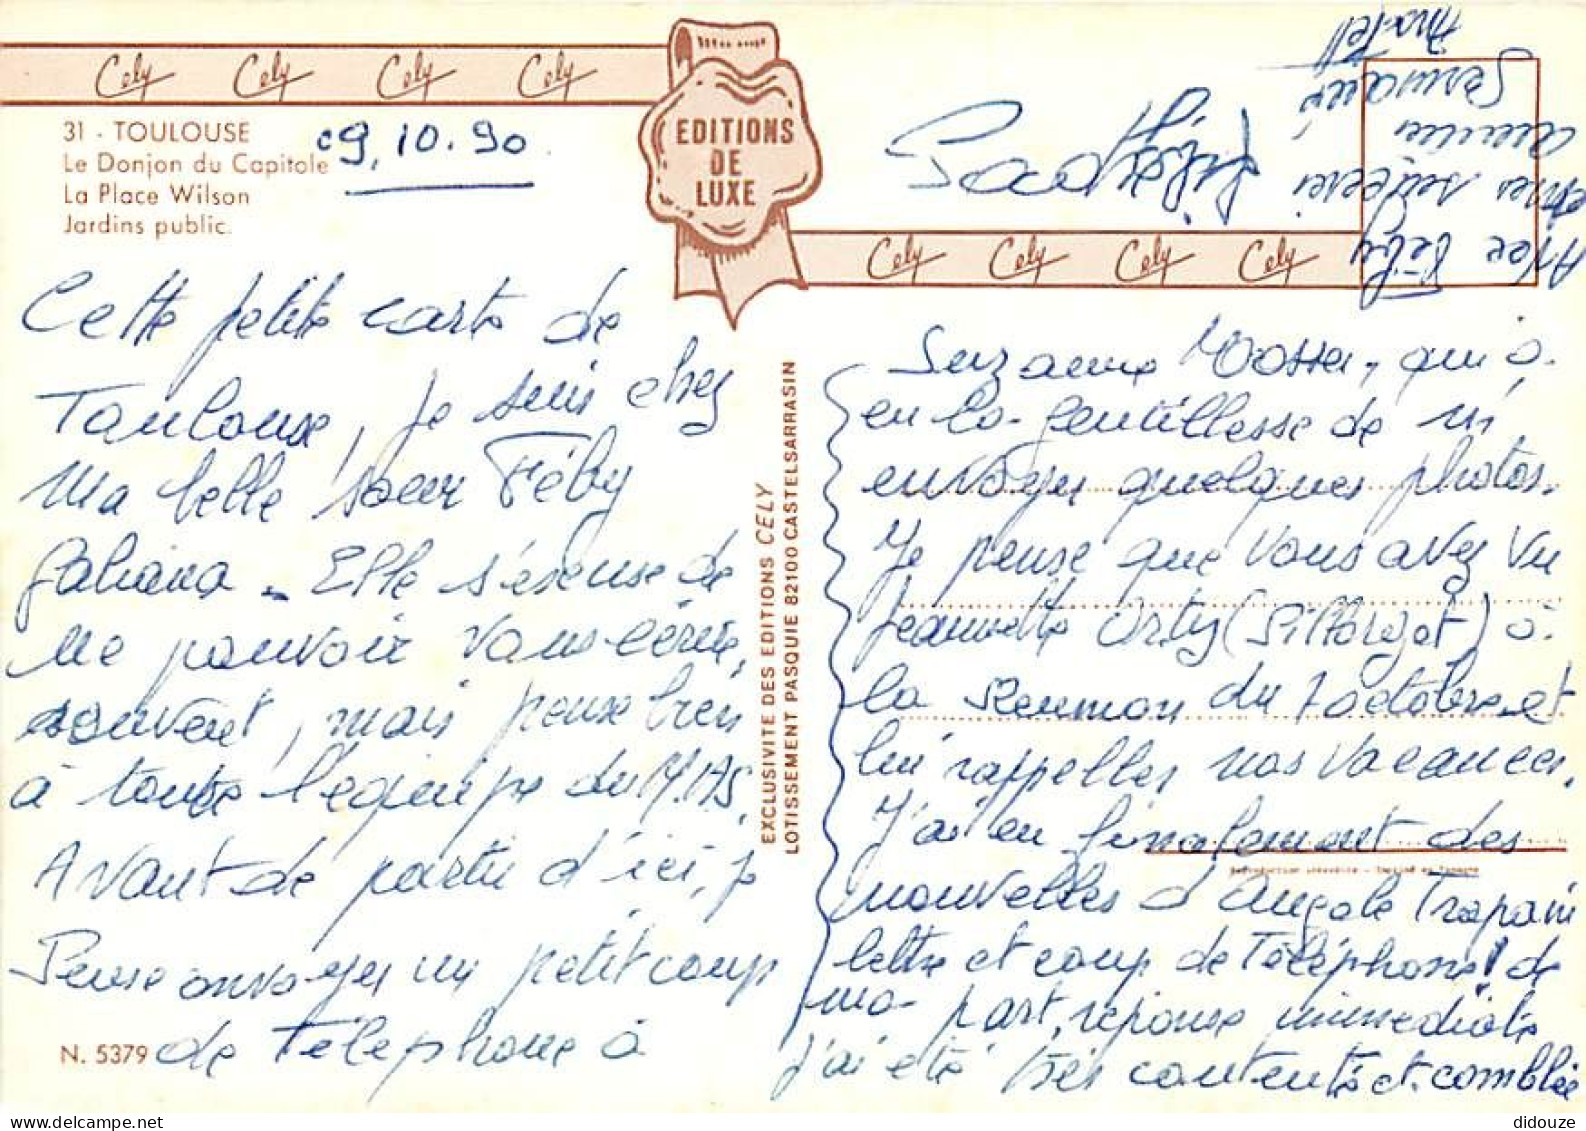 Cely Cely Cely Cely
31 - TOULOUSE
Le Donjon du Capitole
La Place Wilson
Jardins public.
09.10.90
EDITIONS
DE
LUXE
Cely Cely Cely Cely
Cette petite carte de
Toulouse, je suis chez
Ma belle soeur Féby
Galiana. Elle s'éscuse de
ne pouvoir vous écrire,
souvent, mais pense bien
à toute l'équipe du
Avant de partir d'ici, je
Pense envoyer un petit coup
de Téléphone à
N. 5379
EXCLUSIVITE DES EDITIONS CELY
LOTISSEMENT PASQUIE 82100 CASTELSARRASIN
Suzanne qui à
eu la gentillesse de m'
envoyer quelques photos.
Je pense que vous avez vu
Jeannette Orty à
la Reunion du 7 octobre et
lui rappelles nos vacances.
J'ai eu finalement des
nouvelles d'Angèle Trapani
lettre et coup de Téléphone! de
ma part, réponse immediate
j'ai été très contente et comblée
Avec Féby